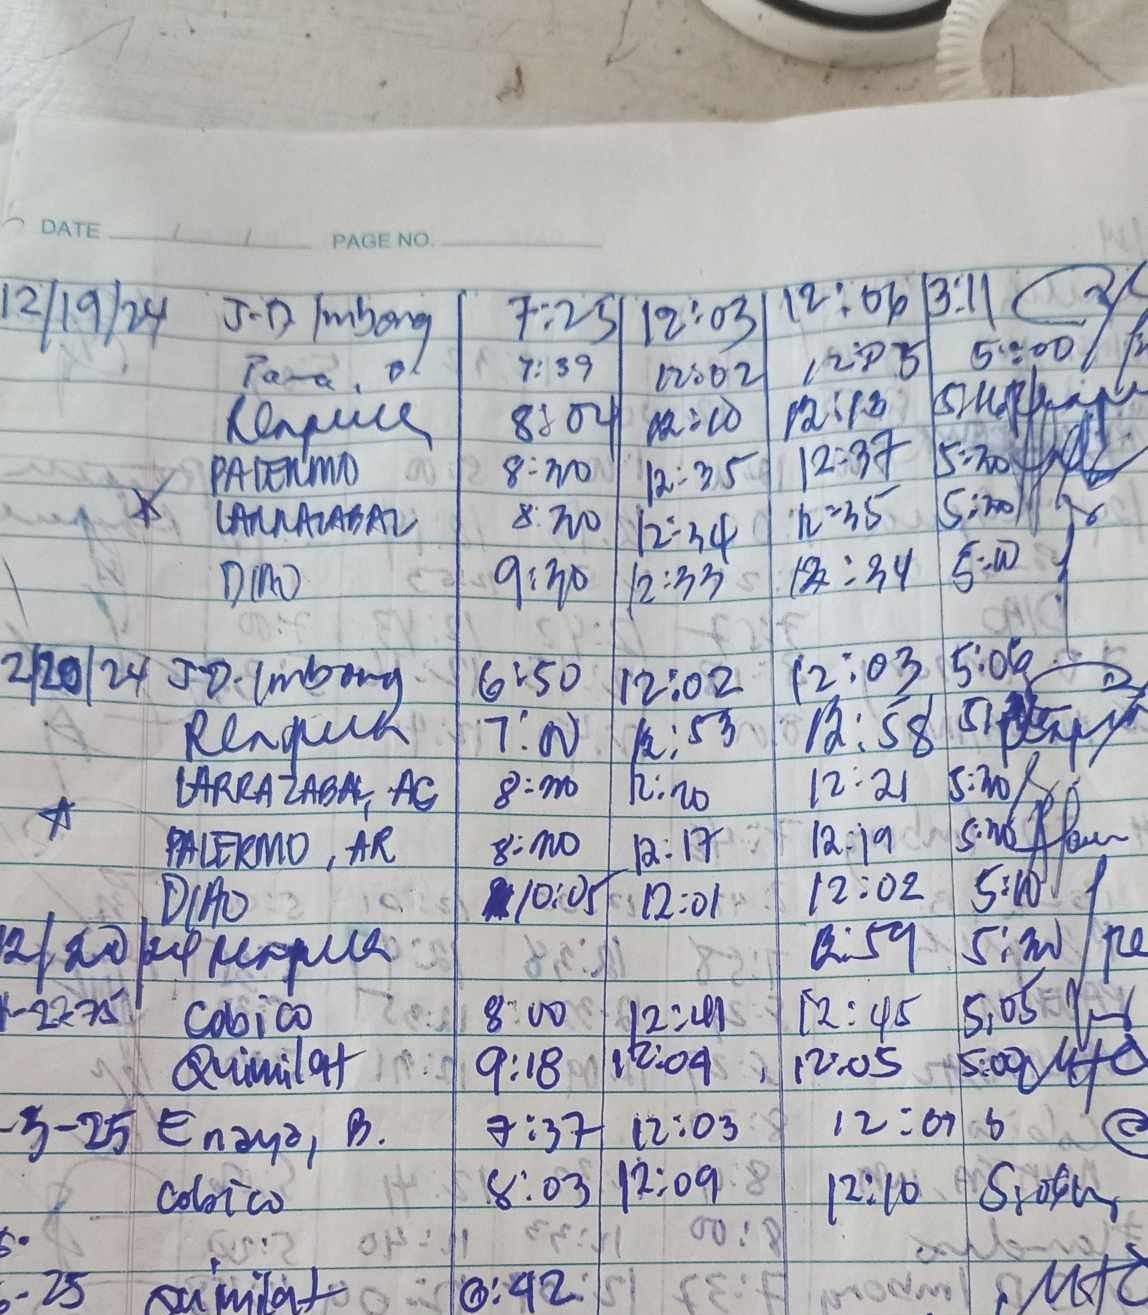 DATE / / PAGE NO.
12/19/24 J.D. Imbong 7:25 12:03 12:06 3:11
7:39 12:02 12:03 5:00
8:04 12:10 12:13
PALERMO 8:30 12:35 12:37 5:30
LARRAZABAL 8:30 12:34 12:35 5:30
DIAO 9:30 12:33 12:34 5:10
2/20/24 J.D. Imbong 6:50 12:02 12:03 5:06
7:00 12:53 12:58
LARRAZABAL, AG 8:30 12:20 12:21 5:30
PALERMO, AR 8:30 12:17 12:19 5:30
DIAO 10:05 12:01 12:02 5:10
12/20/24 12:59 5:30
Cobico 8:00 12:41 12:45 5:05
Quimilat 9:18 12:04 12:05 5:00
-3-25 Enaya, B. 7:37 12:03 12:07
Cobico 8:03 12:09 12:10
-25 Quimilat